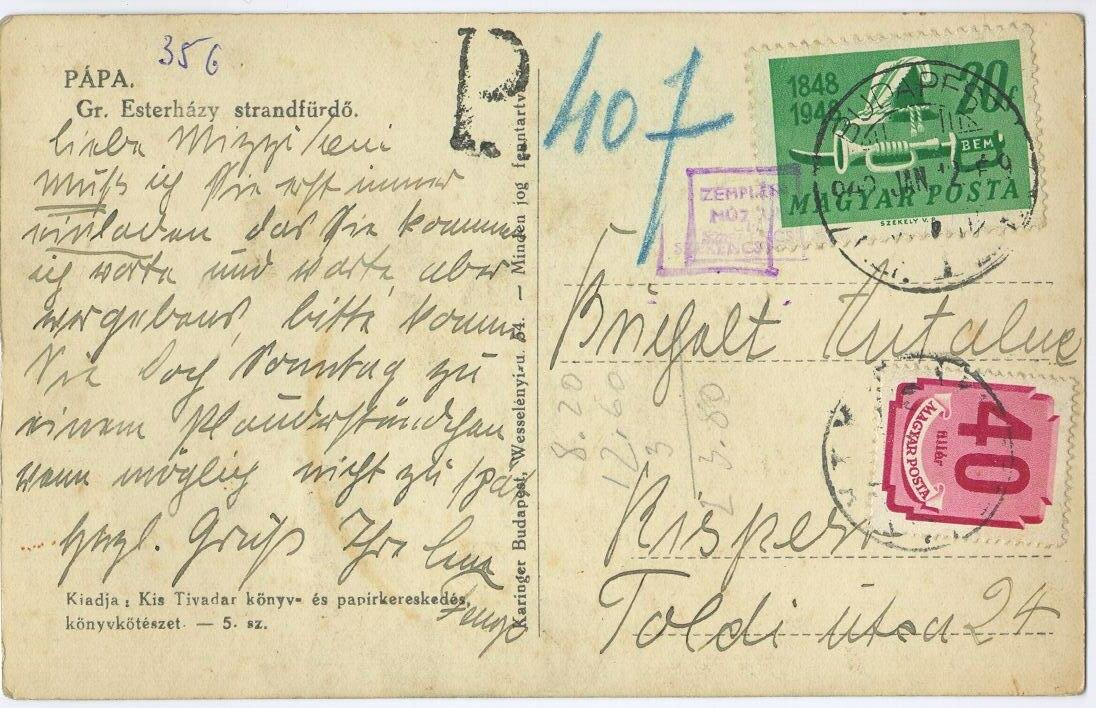 356
PÁPA.
Gr. Esterházy strandfürdő.
liebe Mizzi
Muß ich Sie erst immer
einladen das Sie kommen
ich warte und warte aber
vergebens, bitte kommen
Sie doch Sonntag zu
einem Plauderstündchen
wenn möglich nicht zu spät
Herzl. Gruß Ihre
Kiadja: Kis Tivadar könyv- és papírkereskedés,
könyvkötészet. — 5. sz.
Karinger Budapest, Wesselényi-u. 54. — Minden jog fenntartva
P
407
ZEMPLÉN
MÚZ
1848
1948
BEM
MAGYAR POSTA
SZÉKELY V.
BUDAPEST
JAN
8.20
12.60
3
3.80
Kispest
Toldi utca 24
40
fillér
MAGYAR POSTA